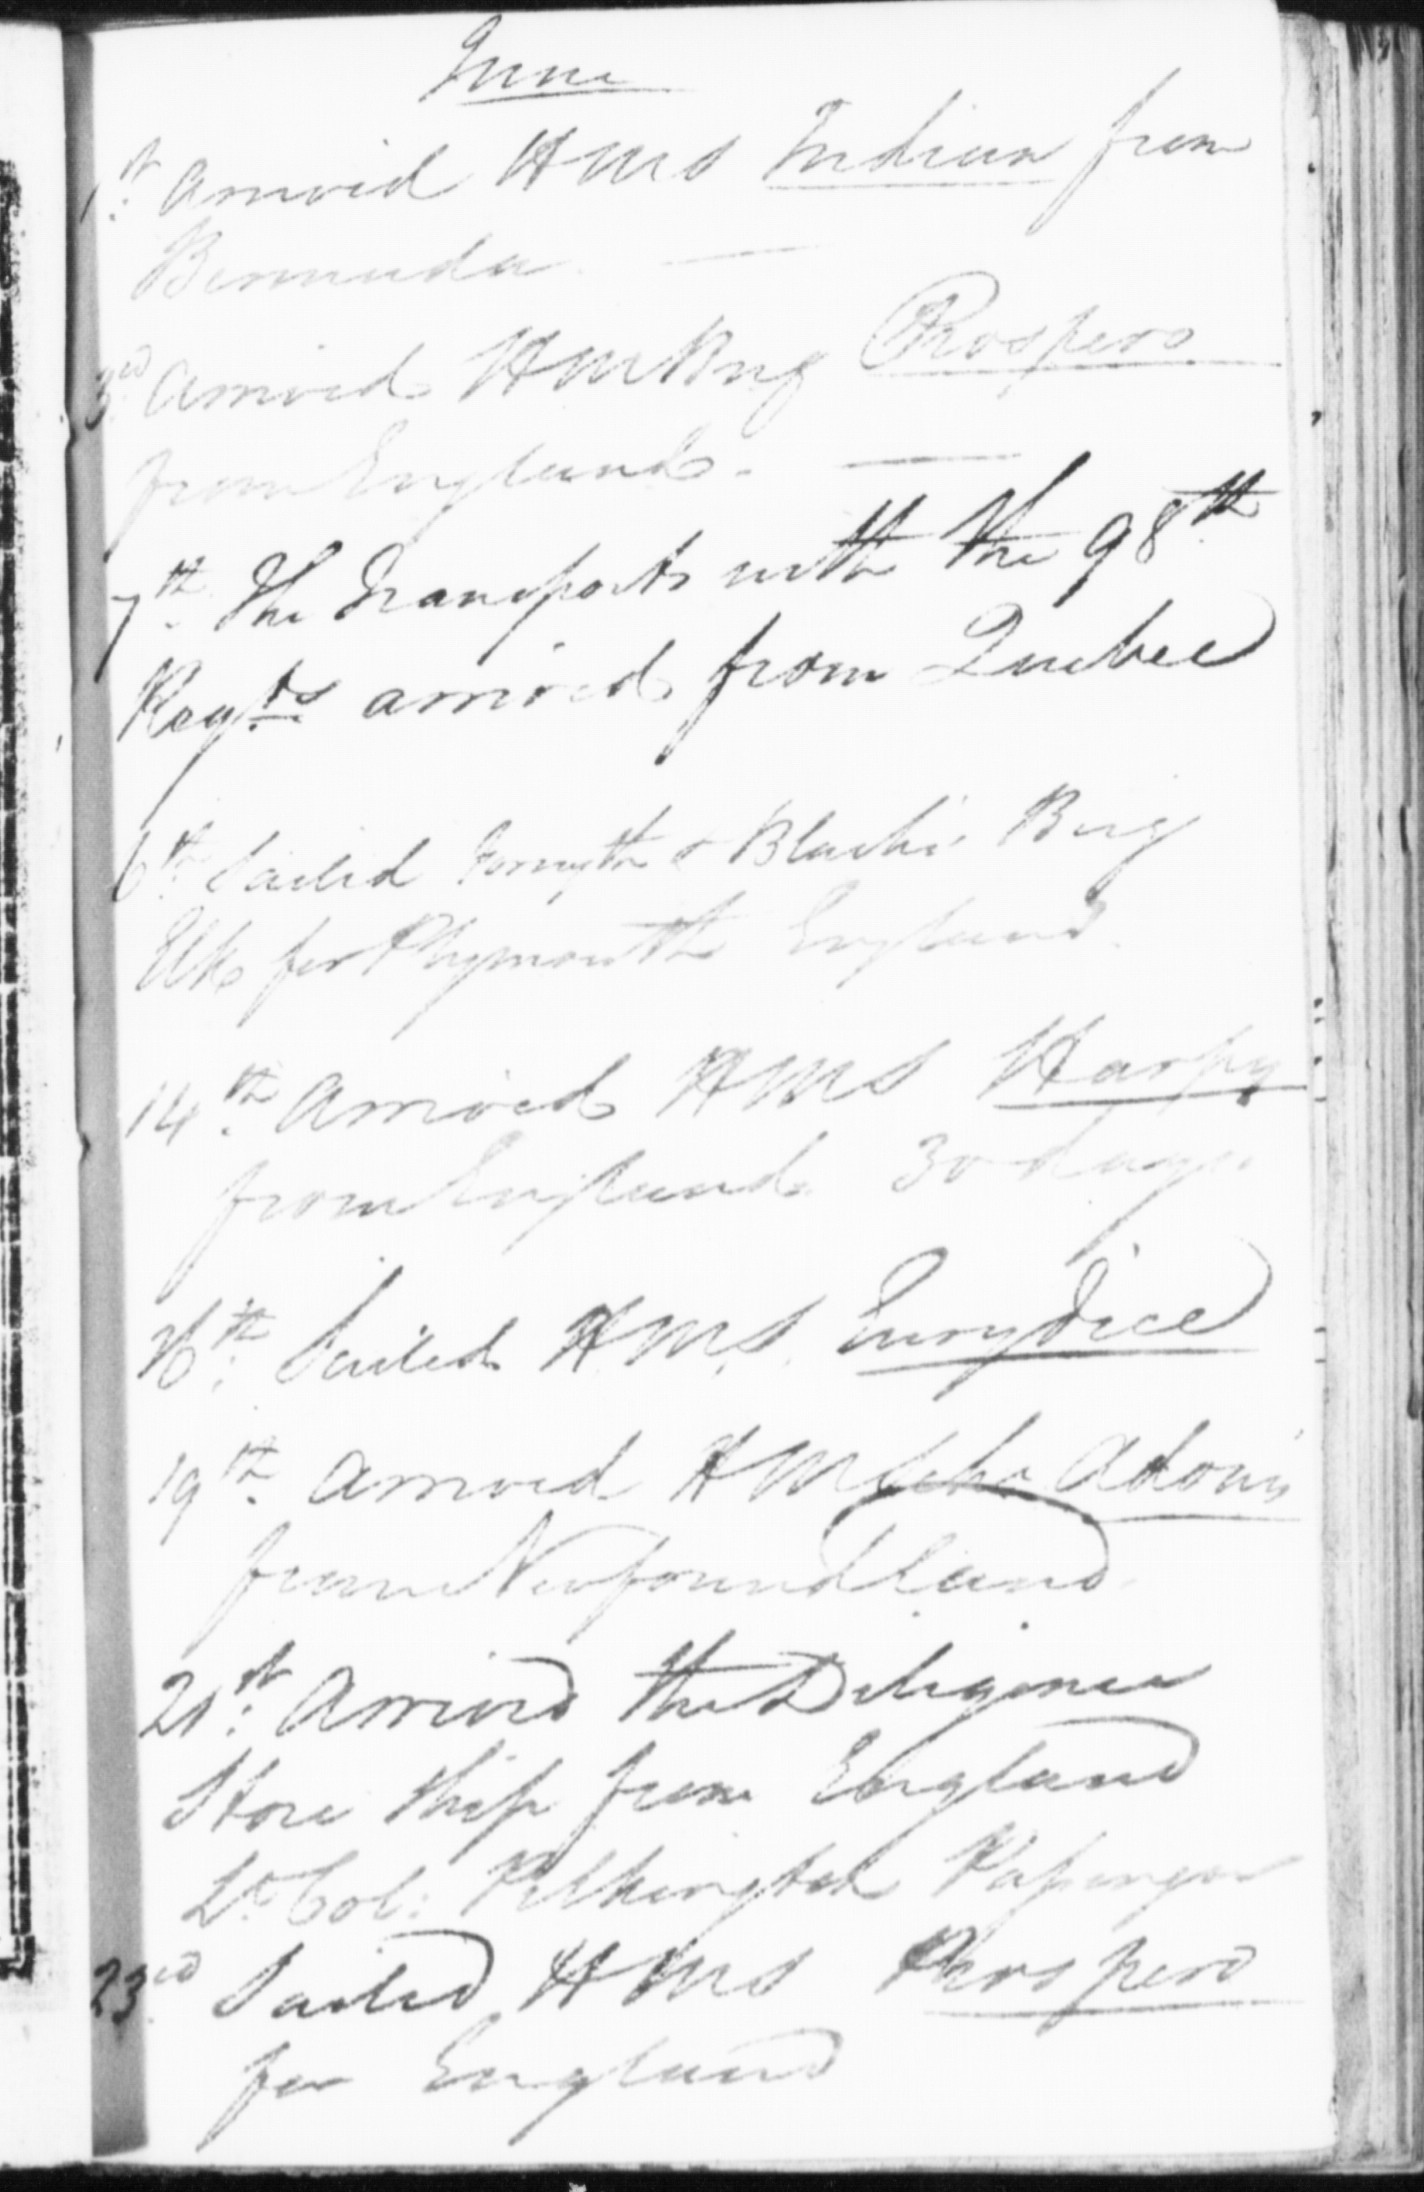 June
1st. Arrived HMS Indian from
Bermuda —
3rd Arrived HM Brig Prospero
from England. —
7th. The Transports with the 98th
Regts arrived from Quebec
6th. Sailed Forsyth & Blacks Brig
Elk for Plymouth England.
14th. Arrived HMS Harpy
from England 30 days
16th. Sailed H.M.S. Eurydice
19th. Arrived HM Schr Adonis
from Newfoundland.
21st. Arrived the Diligence
Store Ship from England
Lt. Col: Pilkington Passenger
23rd Sailed HMS Prospero
for England